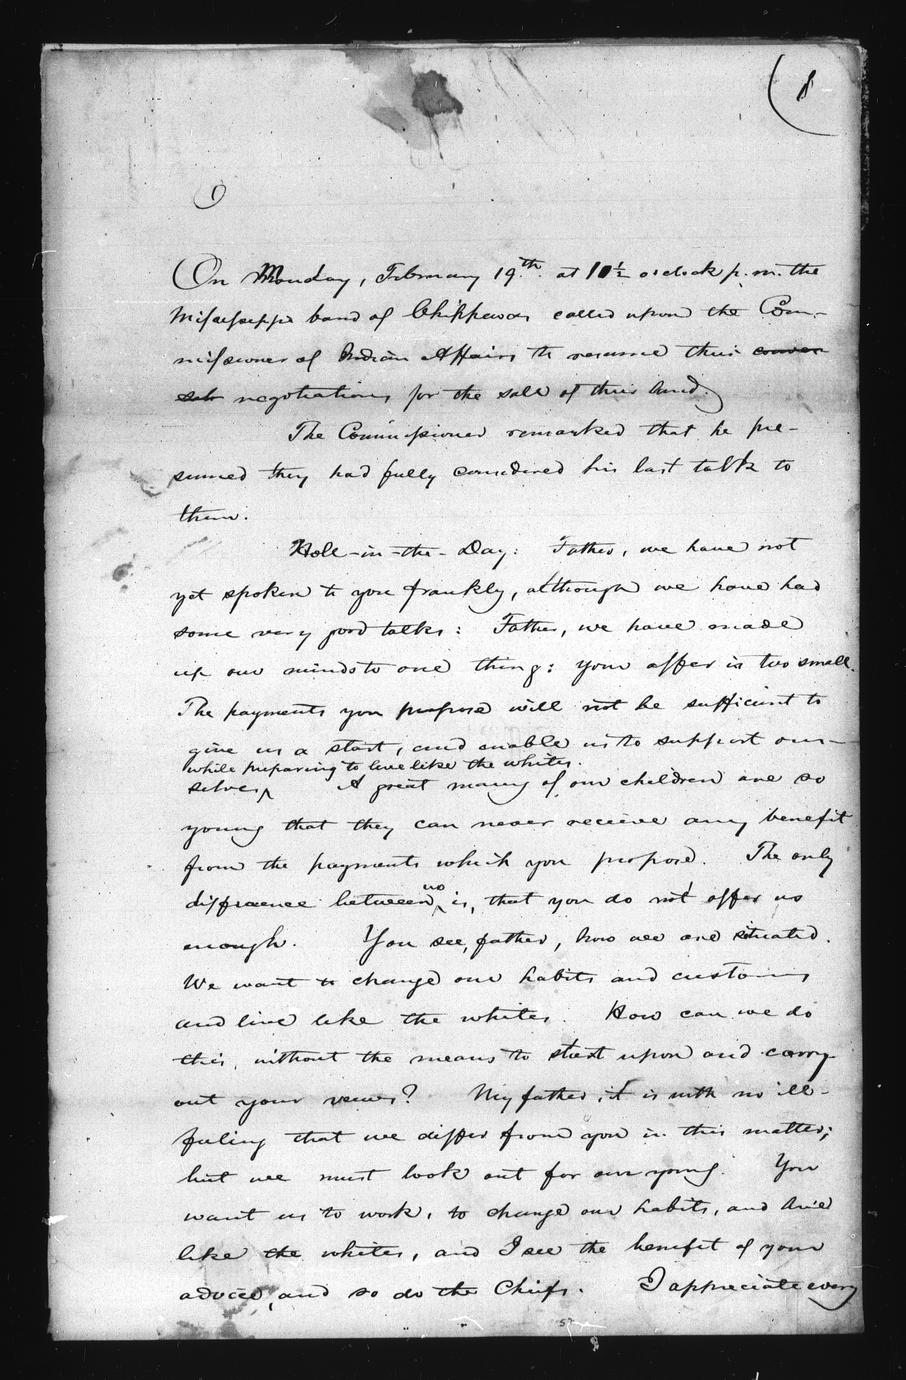 On Monday, February 19th at 10½ o'clock p.m. the
Mississippi band of Chippewas called upon the Com-
missioner of Indian Affairs to resume their conver-
sat negotiations for the sale of their land.
The Commissioner remarked that he pre-
sumed they had fully considered his last talk to
them.
Hole-in-the-Day: Father, we have not
yet spoken to you frankly, although we have had
some very good talks: Father, we have made
up our minds to one thing: your offer is too small.
The payments you propose will not be sufficient to
give us a start, and enable us to support our-
while preparing to live like the whites.
selves^ A great many of our children are so
young that they can never receive any benefit
from the payments which you propose. The only
us
difference between^ is, that you do not offer us
enough. You see, father, how we are situated.
We want to change our habits and customs
and live like the whites. How can we do
this, without the means to start upon and carry
out your views? My father, it is with no ill-
feeling that we differ from you in this matter;
but we must look out for our young. You
want us to work, to change our habits, and live
like the whites, and I see the benefit of your
advice, and so do the Chiefs. I appreciate every